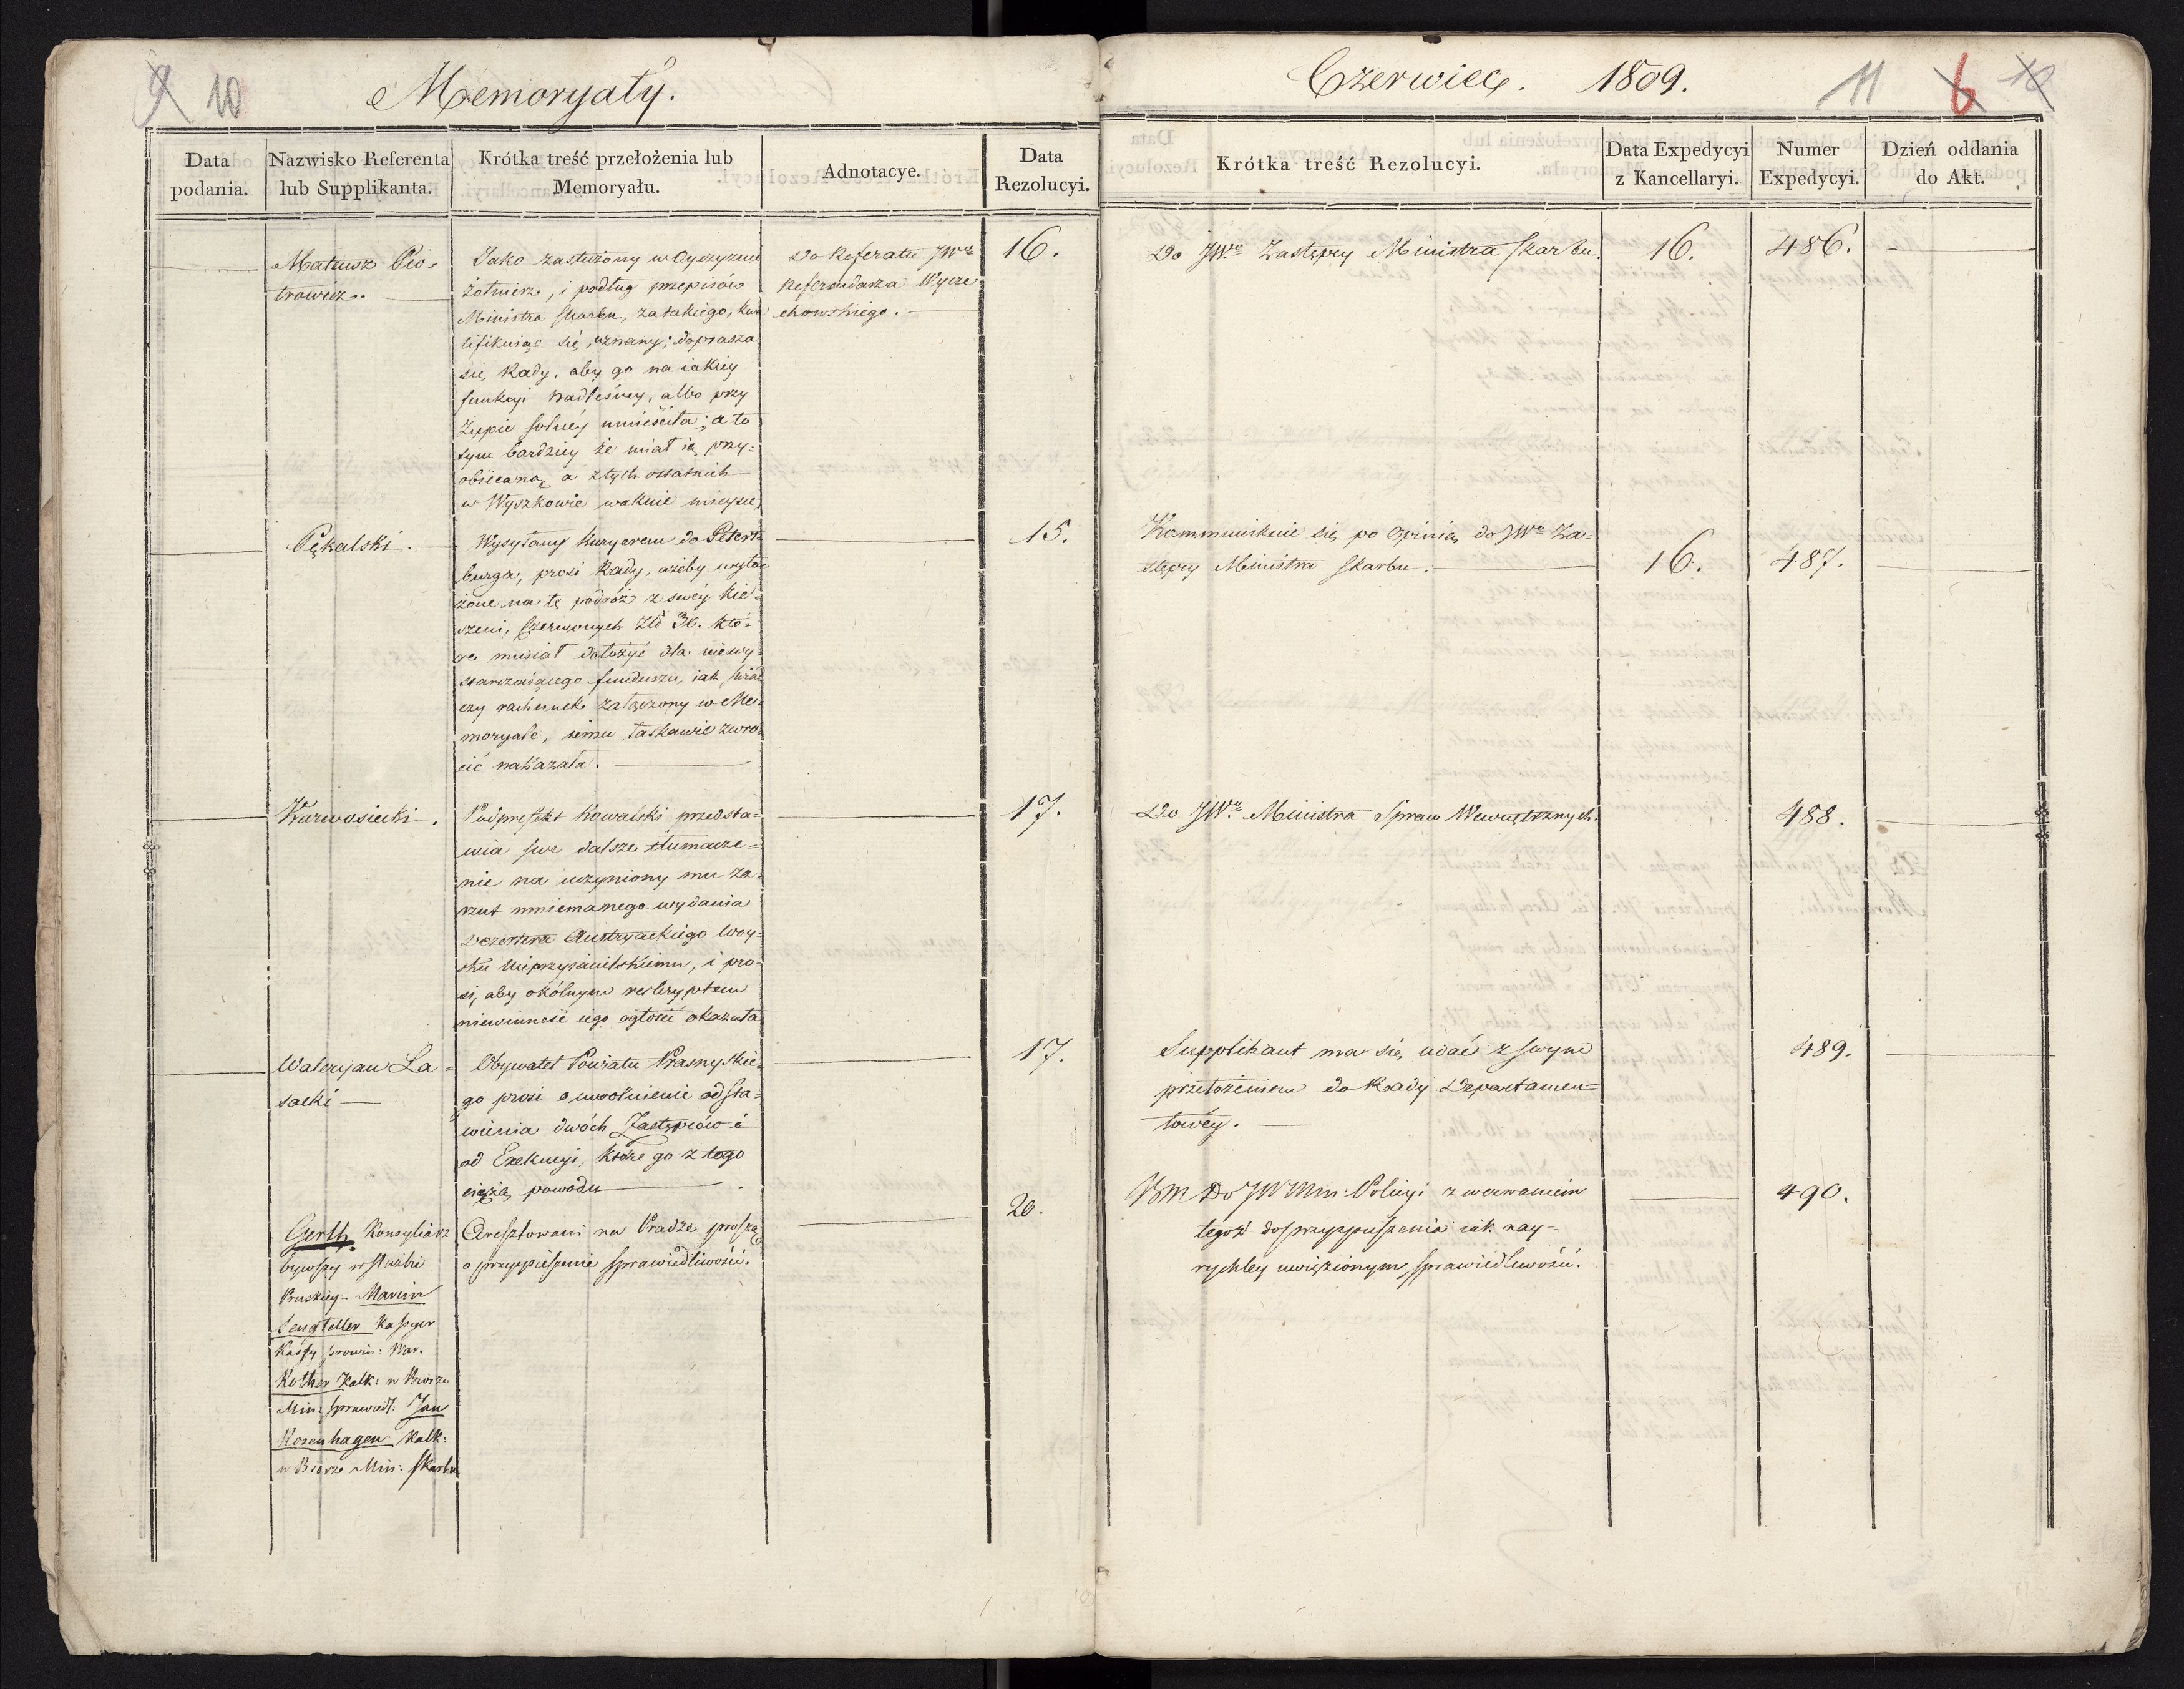 9 10
Memoryały.
Czerwiec. 1809.
11 6 10
Data podania.
Nazwisko Referenta lub Supplikanta.
Krótka treść przełożenia lub Memoryału.
Adnotacye.
Data Rezolucyi.
Krótka treść Rezolucyi.
Data Expedycyi z Kancellaryi.
Numer Expedycyi.
Dzień oddania do Akt.
Mateusz Pio=
trowicz.
Jako zasłużony w Oyczyznie
żołnierz, i podług przepisów
Ministra Skarbu, za takiego, kwa
lifikuiąc się, uznany; doprasza
się Rady, aby go na iakiey
funkcyi nadleśney, albo przy
Żupie solney umieściła; a to
tym bardziey że miał ią przy=
obiecaną, a z tych ostatnich
w Wyszkowie wakuie mieysce,
Do Referatu JWo
Referendarza Wycze
chowskiego.
16.
Do JWo Zastępcy Ministra Skarbu.
16.
486.
Pękalski.
Wysyłany Kuryerem do Peters=
burga, prosi Rady, ażeby wyło=
żone na tę podróż z swéy kie=
szeni, Czerwonych Złł 36. któ=
re musiał dołożyć dla niewy=
starczaiącego funduszu, iak świad
czy rachunek załączony w Me=
moryale, iemu łaskawie zwró=
cić nakazała.
15.
Kommunikuie się po Opinią do JWo Za=
stępcy Ministra Skarbu.
16.
487.
Karwosiecki.
Podprefekt Kowalski przedsta=
wia swe dalsze tłumacze=
nie na uczyniony mu za=
rzut mniemanego wydania
Dezertera Austryackiego Woy=
sku Nieprzyiacielskiemu, i pro=
si, aby okólnym reskryptem
niewinność iego ogłosić okazała
17.
Do JWo Ministra Spraw Wewnętrznych.
488.
Waleryan La=
sacki
Obywatel Powiatu Prasnyskie=
go prosi o uwolnienie odsta=
wienia dwóch Zastępców i
od Exekucyi, które go z tego
ciężą powodu.
17.
Supplikant ma się udać z swym
przełożeniem do Rady Departamen=
towéy.
489.
Gerth Konsyliarz
bywszy w służbie
Pruskiey - Marcin
Lengteller Kassyer
Kassy prowin: War.
Rother Kalk: w Biorze
Min: sprawiedl: Jan
Rosenhagen Kalk:
w Biorze Min: Skarbu
Aresztowani na Pradze proszą
o przyspieszenie sprawiedliwości.
20.
Do JW Min: Policyi z wezwaniem
tegoż do przyspieszenia iak nay=
rychley uwięzionym sprawiedliwości.
490.